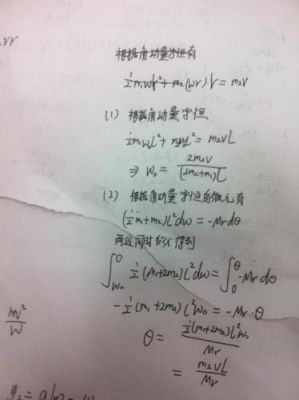 根据角动量守恒有
½m₁wl²+m₂(wr)·r=m₂v
(1) 根据角动量守恒
½m₁wl²+m₂wl²=m₂vl
⇒ w₀=2m₂v/(2m₂+m₁)l
(2) 根据角动量守恒的微元有
(½m₁+m₂)l²dw=-Mrdθ
两边同时积分得到
∫_{w₀}^{0} ½(m₁+2m₂)l²dw=∫_{0}^{θ}-Mrdθ
-½(m₁+2m₂)l²w₀=-Mr·θ
θ=½(m₁+2m₂)l²w₀/Mr
=m₂vl/Mr
mv²/W